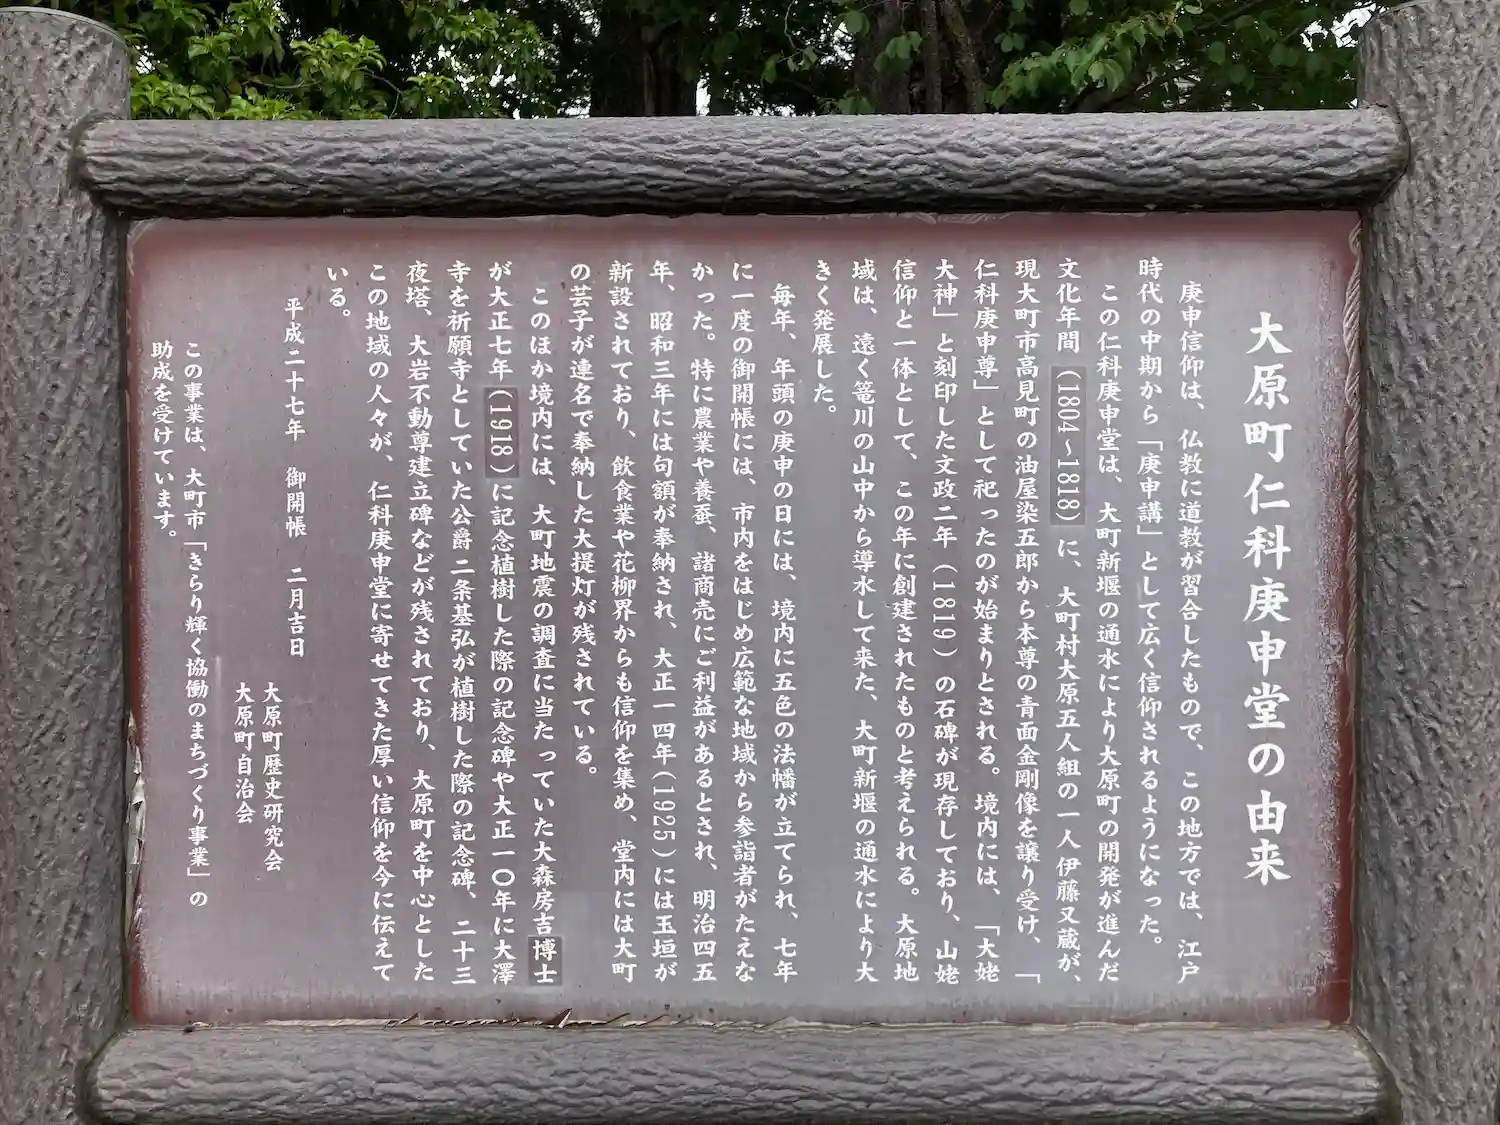 大原町仁科庚申堂の由来
庚申信仰は、仏教に道教が習合したもので、この地方では、江戸
時代の中期から「庚申講」として広く信仰されるようになった。
この仁科庚申堂は、大町新堰の通水により大原町の開発が進んだ
文化年間(1804～1818)に、大町村大原五人組の一人伊藤又蔵が、
現大町市高見町の油屋染五郎から本尊の青面金剛像を譲り受け、「
仁科庚申尊」として祀ったのが始まりとされる。境内には、「大姥
大神」と刻印した文政二年(1819)の石碑が現存しており、山姥
信仰と一体として、この年に創建されたものと考えられる。大原地
域は、遠く篭川の山中から導水して来た、大町新堰の通水により大
きく発展した。
毎年、年頭の庚申の日には、境内に五色の法幡が立てられ、七年
に一度の御開帳には、市内をはじめ広範な地域から参詣者がたえな
かった。特に農業や養蚕、諸商売にご利益があるとされ、明治四五
年、昭和三年には句額が奉納され、大正一四年(1925)には玉垣が
新設されており、飲食業や花柳界からも信仰を集め、堂内には大町
の芸子が連名で奉納した大提灯が残されている。
このほか境内には、大町地震の調査に当たっていた大森房吉博士
が大正七年(1918)に記念植樹した際の記念碑や大正一〇年に大澤
寺を祈願寺としていた公爵二条基弘が植樹した際の記念碑、二十三
夜塔、大岩不動尊建立碑などが残されており、大原町を中心とした
この地域の人々が、仁科庚申堂に寄せてきた厚い信仰を今に伝えて
いる。
平成二十七年 御開帳 二月吉日
大原町歴史研究会
大原町自治会
この事業は、大町市「きらり輝く協働のまちづくり事業」の
助成を受けています。